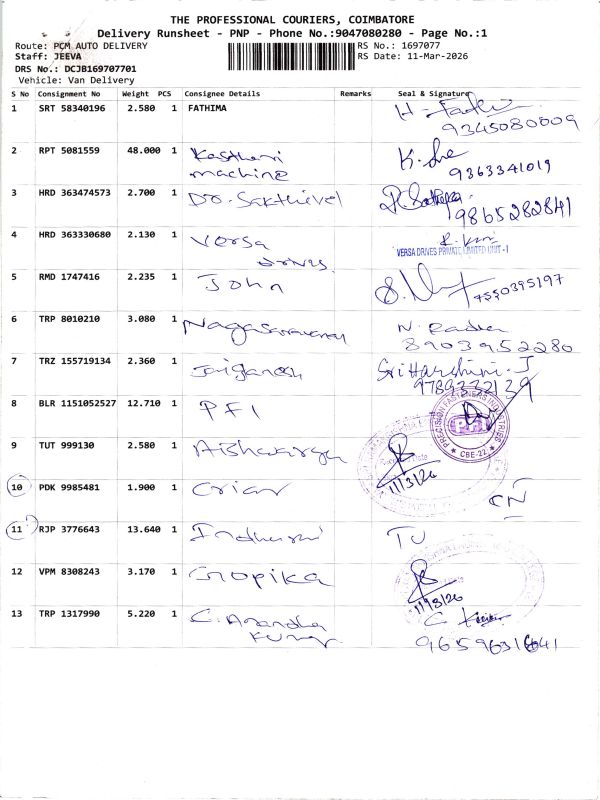 THE PROFESSIONAL COURIERS, COIMBATORE
Delivery Runsheet - PNP - Phone No.:9047080280 - Page No.:1
Route: PCM AUTO DELIVERY
Staff: JEEVA
DRS No.: DCJB169707701
Vehicle: Van Delivery
RS No.: 1697077
RS Date: 11-Mar-2026
S No Consignment No Weight PCS Consignee Details Remarks Seal & Signature
1 SRT 58340196 2.580 1 FATHIMA
9345080009
2 RPT 5081559 48.000 1 Kasthuri
machine
9363341019
3 HRD 363474573 2.700 1 Dr. Sakthivel
9865282841
4 HRD 363330680 2.130 1 Versa
drives.
VERSA DRIVES PRIVATE LIMITED UNIT - 1
5 RMD 1747416 2.235 1 John
7550395197
6 TRP 8010210 3.080 1 N. Radha
8903952280
7 TRZ 155719134 2.360 1 Jaiganesh Sri Harshini. J
8 BLR 1151052527 12.710 1 PFI
PRECISION FASTENERS INDUSTRIES
CBE-22
9 TUT 999130 2.580 1 Aishwarya
11/3/26
10 PDK 9985481 1.900 1 CN
11 RJP 3776643 13.640 1
12 VPM 8308243 3.170 1 Gopika
11/03/26
13 TRP 1317990 5.220 1 C. Anandha
Kumar
9659631641